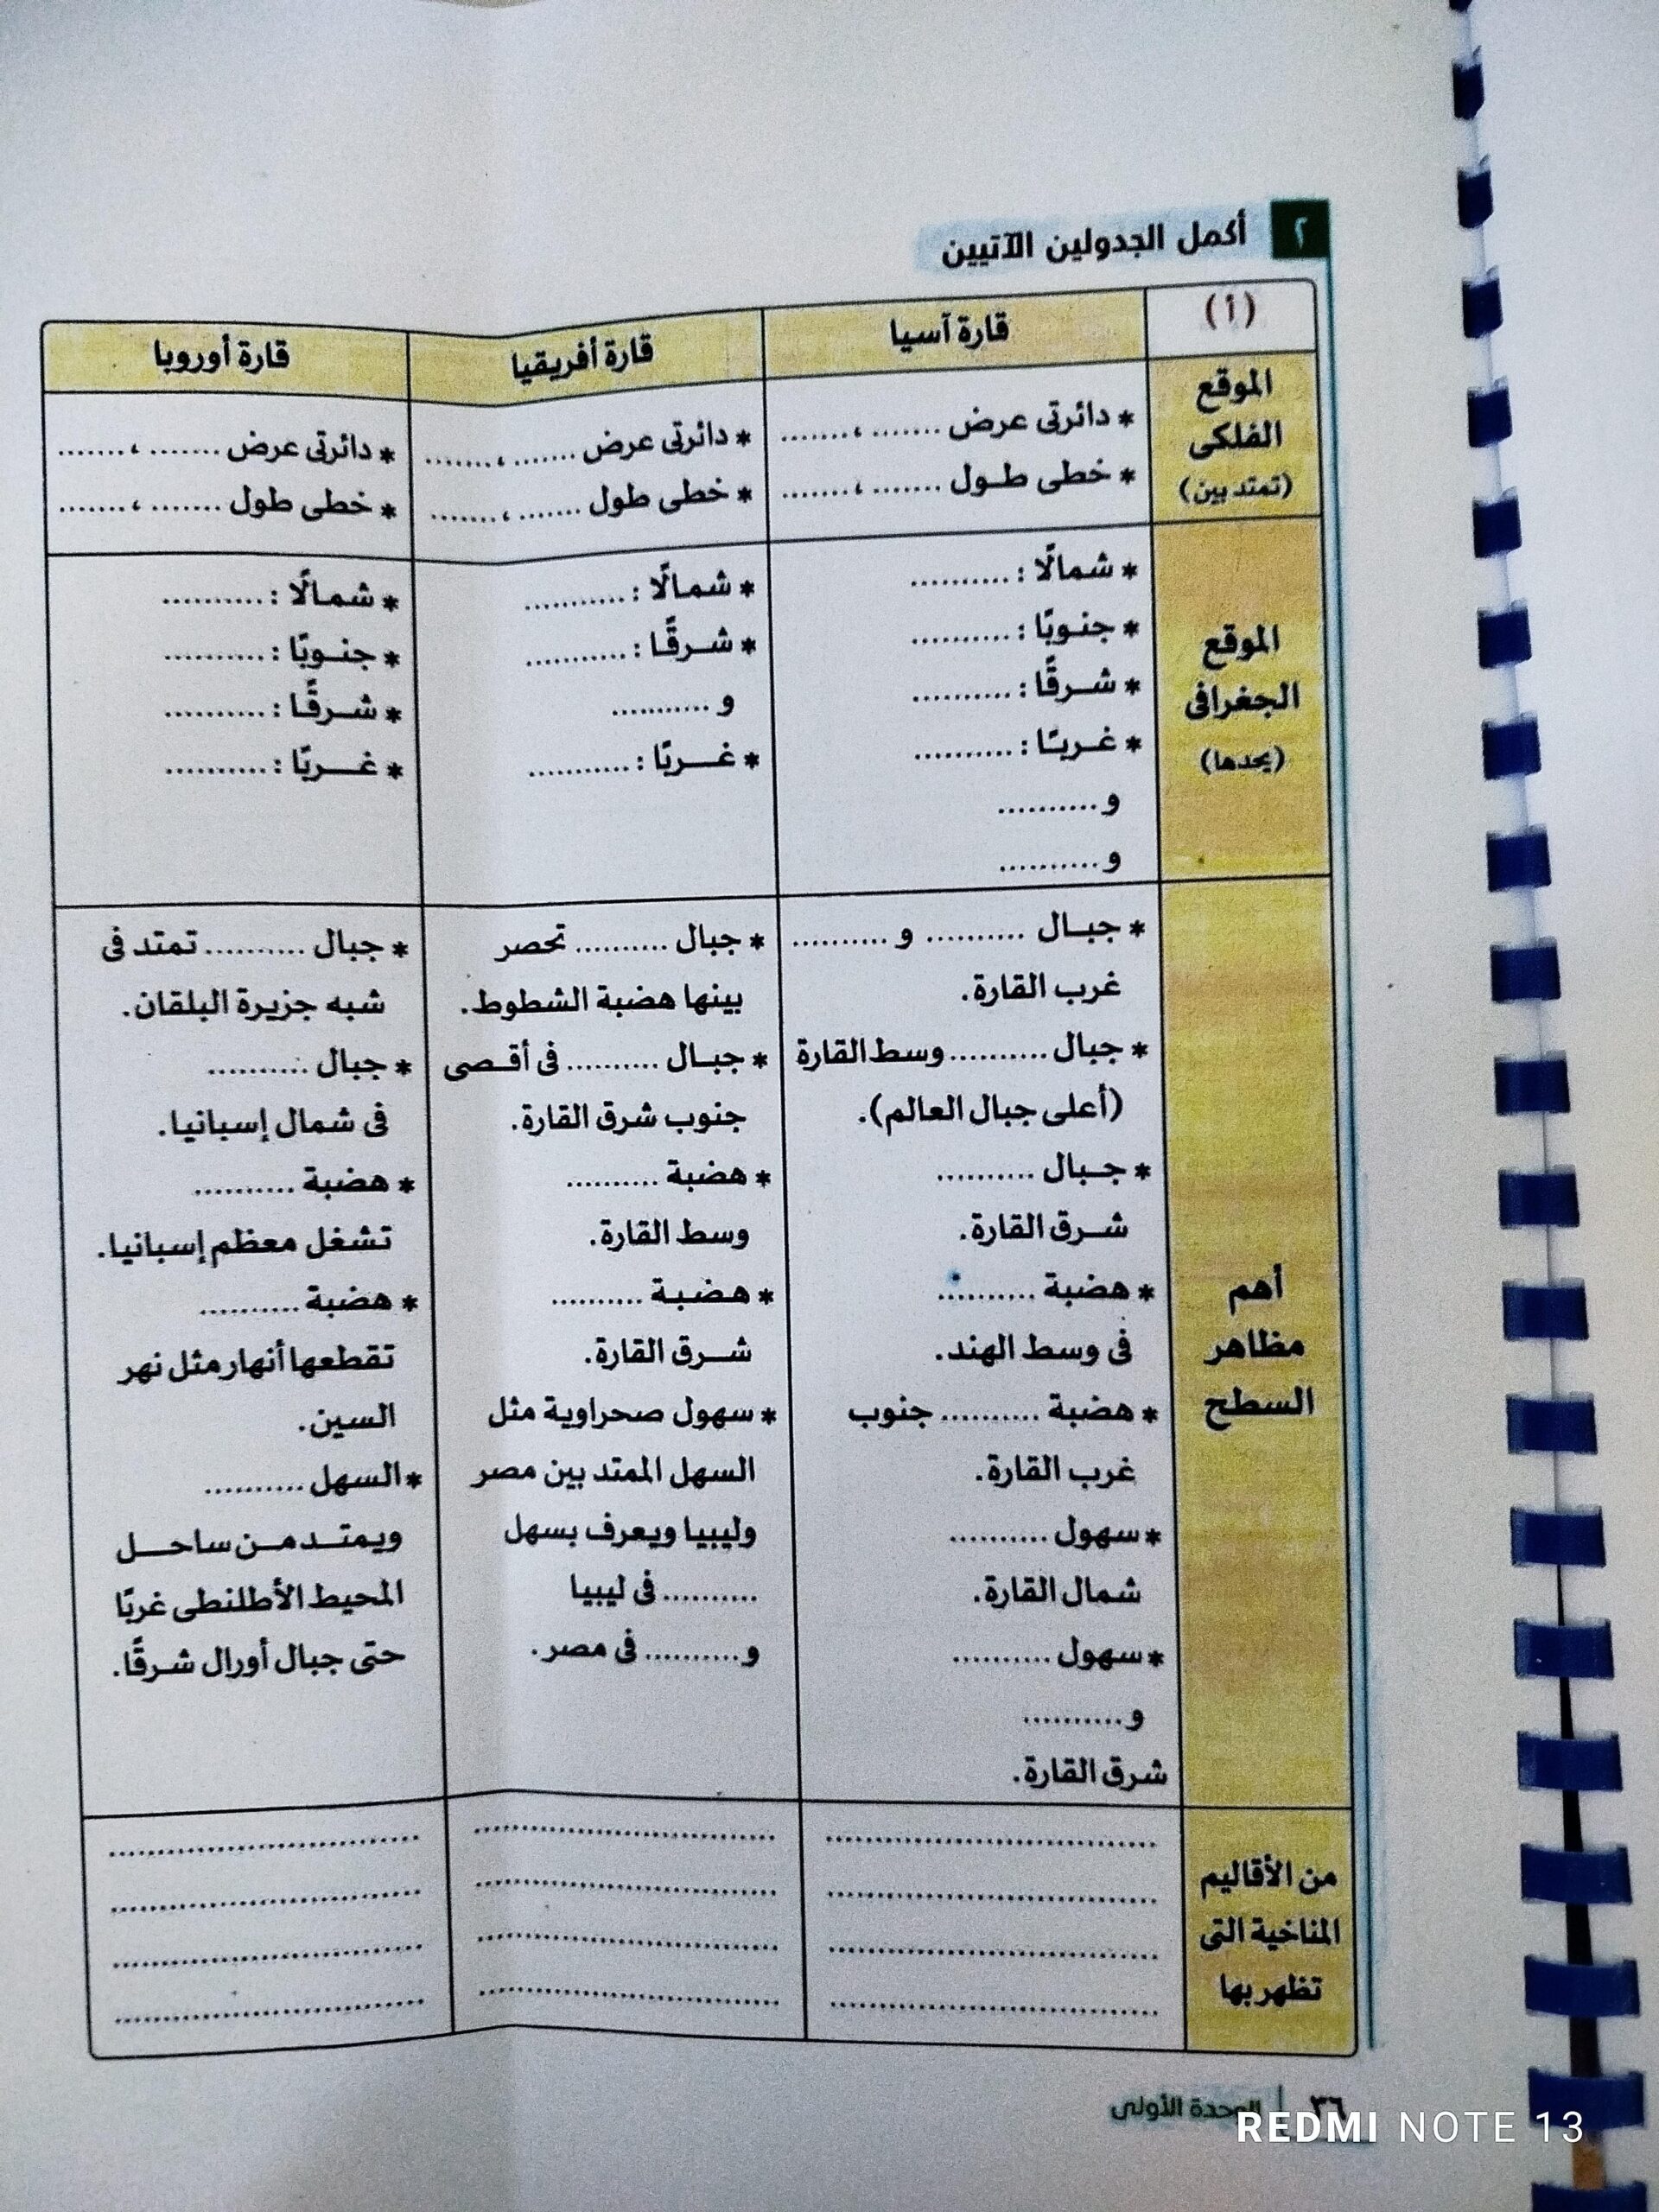 ٢ أكمل الجدولين الآتيين
(أ)
قارة آسيا
قارة أفريقيا
قارة أوروبا
الموقع
الفلكى
(تمتد بين)
* دائرتى عرض ........ ، ........
* خطى طول ........ ، ........
* دائرتى عرض ........ ، ........
* خطى طول ........ ، ........
* دائرتى عرض ........ ، ........
* خطى طول ........ ، ........
الموقع
الجغرافى
(يحدها)
* شمالًا : ..........
* جنوبًا : ..........
* شرقًا : ..........
* غربًا : ..........
و ..........
و ..........
* شمالًا : ..........
* شرقًا : ..........
و ..........
* غربًا : ..........
* شمالًا : ..........
* جنوبًا : ..........
* شرقًا : ..........
* غربًا : ..........
أهم
مظاهر
السطح
* جبال .......... و ..........
غرب القارة.
* جبال .......... وسط القارة
(أعلى جبال العالم).
* جبال ..........
شرق القارة.
* هضبة ..........
فى وسط الهند.
* هضبة .......... جنوب
غرب القارة.
* سهول ..........
شمال القارة.
* سهول ..........
و ..........
شرق القارة.
* جبال .......... تحصر
بينها هضبة الشطوط.
* جبال .......... فى أقصى
جنوب شرق القارة.
* هضبة ..........
وسط القارة.
* هضبة ..........
شرق القارة.
* سهول صحراوية مثل
السهل الممتد بين مصر
وليبيا ويعرف بسهل
.......... فى ليبيا
و .......... فى مصر.
* جبال .......... تمتد فى
شبه جزيرة البلقان.
* جبال ..........
فى شمال إسبانيا.
* هضبة ..........
تشغل معظم إسبانيا.
* هضبة ..........
تقطعها أنهار مثل نهر
السين.
* السهل ..........
ويمتد من ساحل
المحيط الأطلنطى غربًا
حتى جبال أورال شرقًا.
من الأقاليم
المناخية التى
تظهر بها
٣٦ | الوحدة الأولى
REDMI NOTE 13